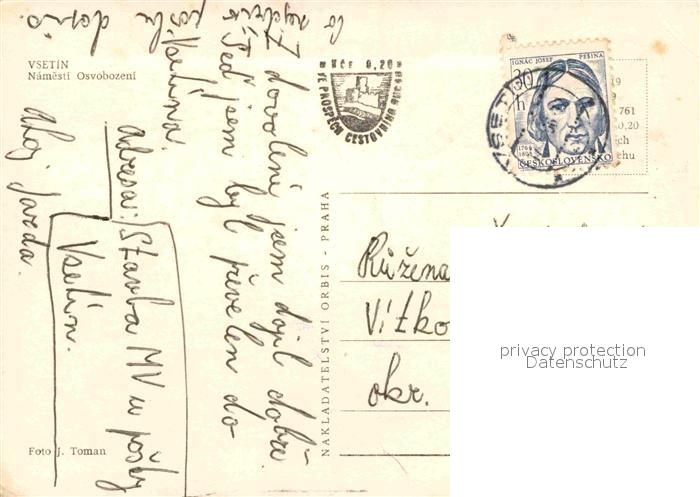 VSETÍN
Náměstí Osvobození
Z dovolení jsem dojil dobře
Teď jsem byl převelen do
Vsetína.
co
pošli
dopis.
Adresa: Stavba MV u pošty
Vsetín.
Ahoj Jarda.
Foto J. Toman
NAKLADATELSTVÍ ORBIS - PRAHA
KČS 0,20
VE PROSPĚCH CESTOVNÍHO RUCHU
IGNÁC JOSEF PEŠINA
30
h
1766
ČESKOSLOVENSKO
VSETÍN
19
9
761
0,20
ch
chu
Růžena
Vítko
okr.
privacy protection
Datenschutz